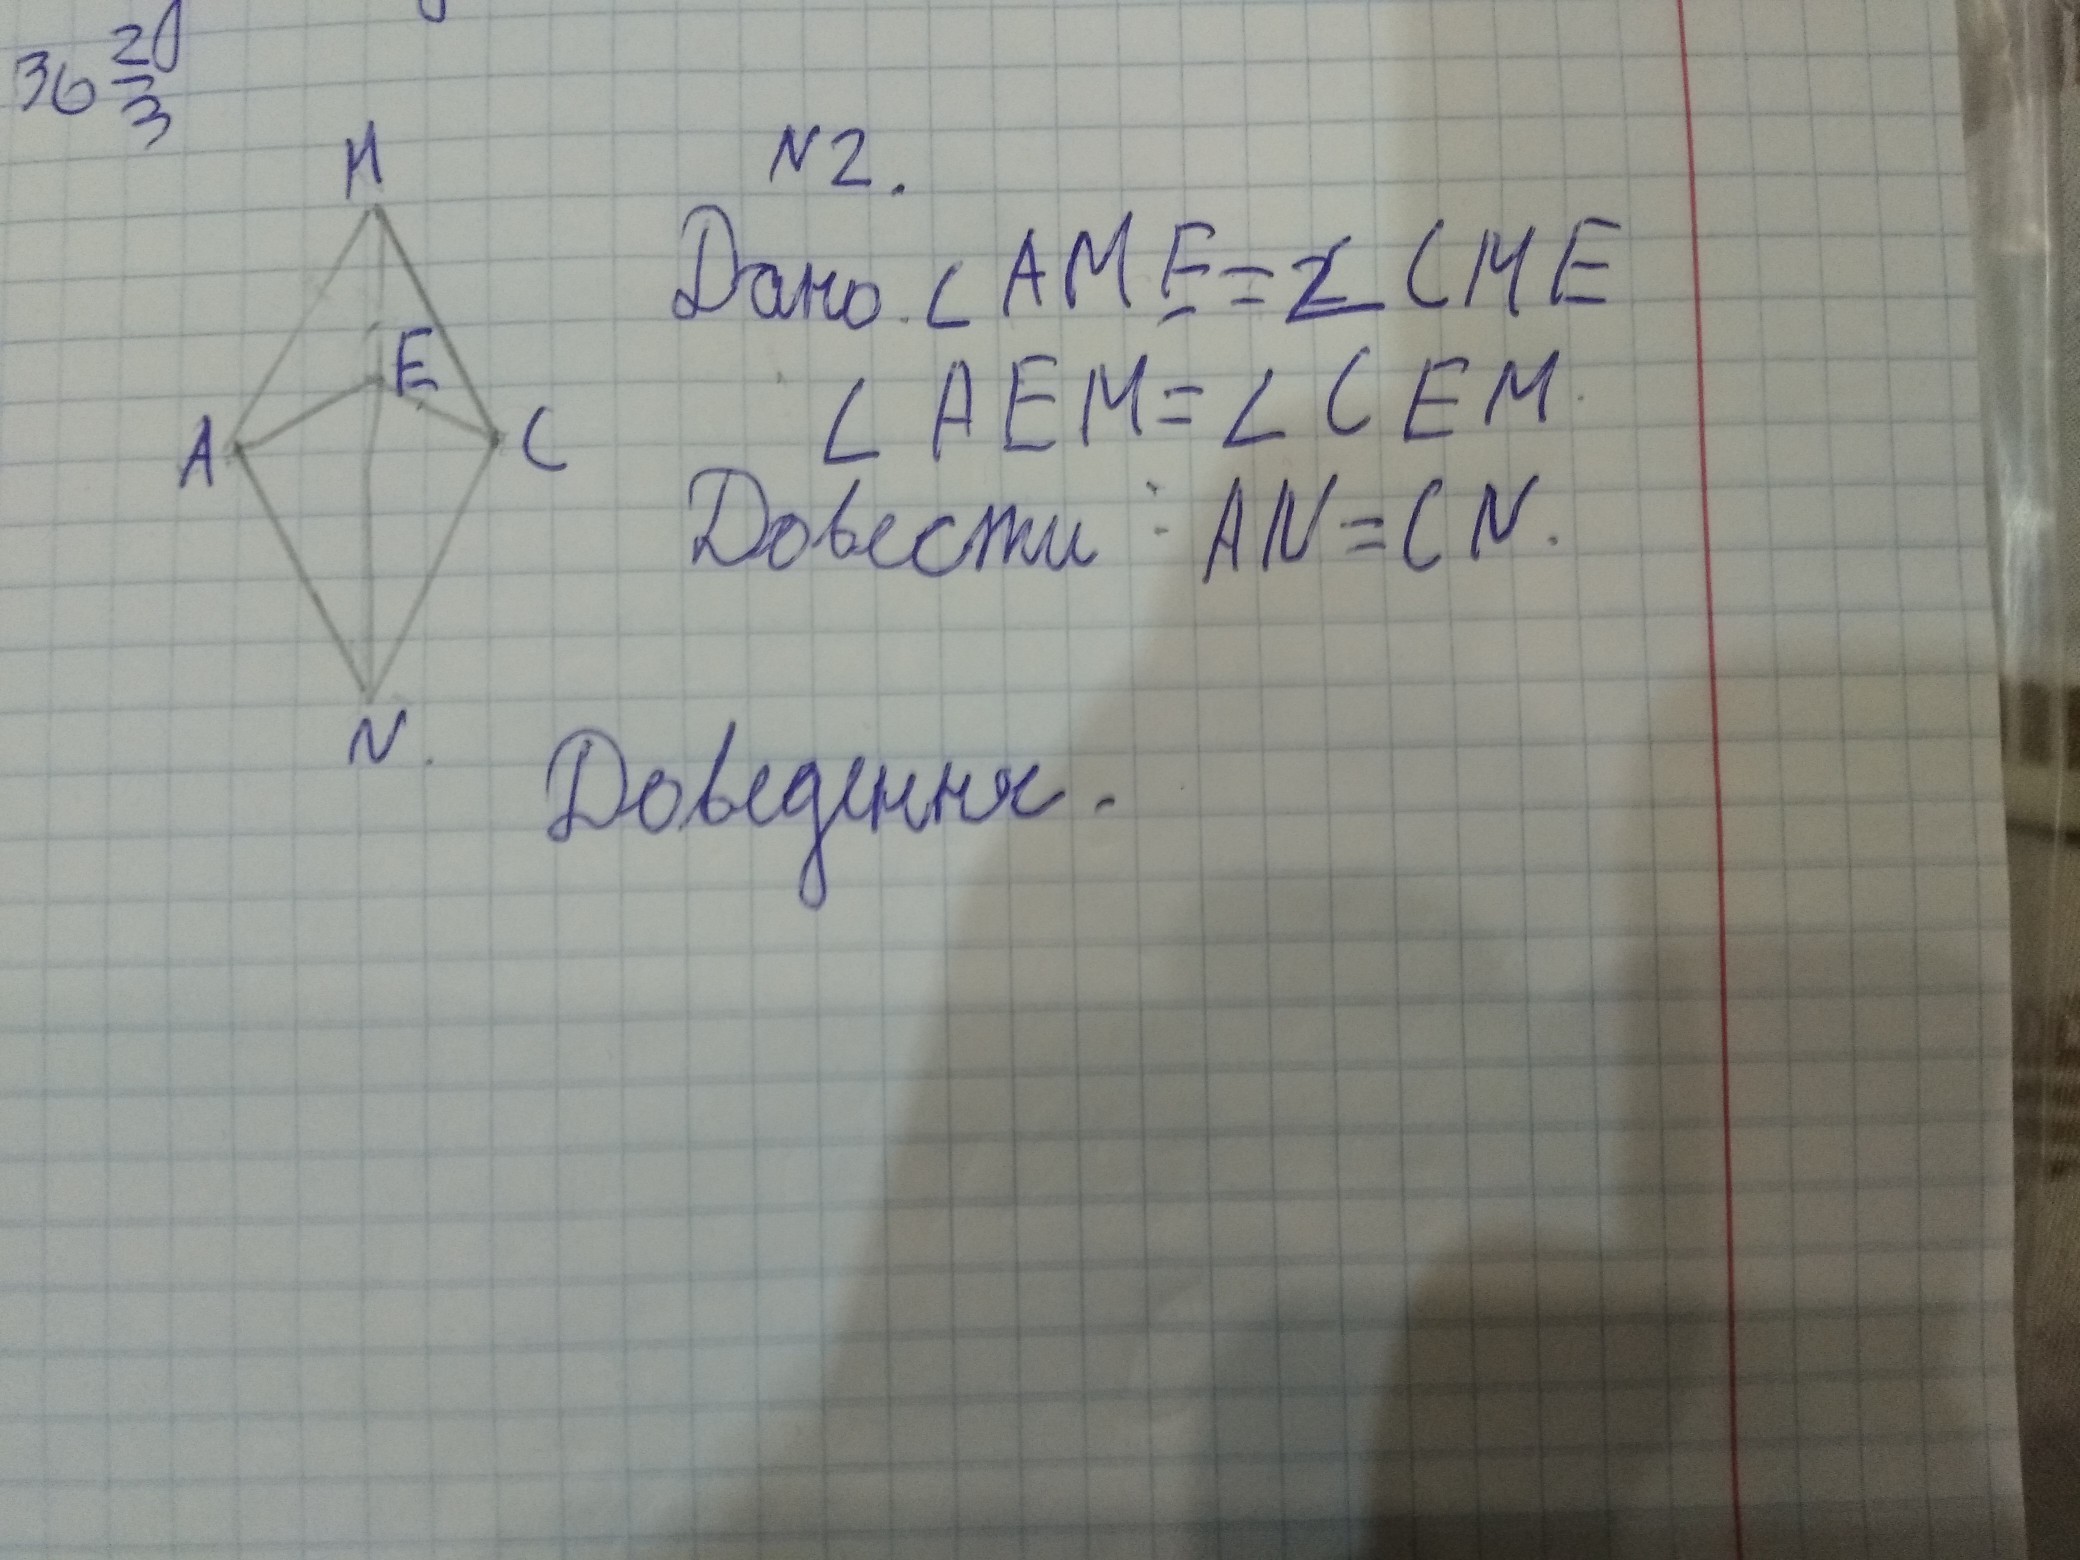 36 2/3
M
N2.
Дано. ∠AME=∠CME
E
∠AEM=∠CEM.
A
C
Довести: AN=CN.
N.
Доведення.